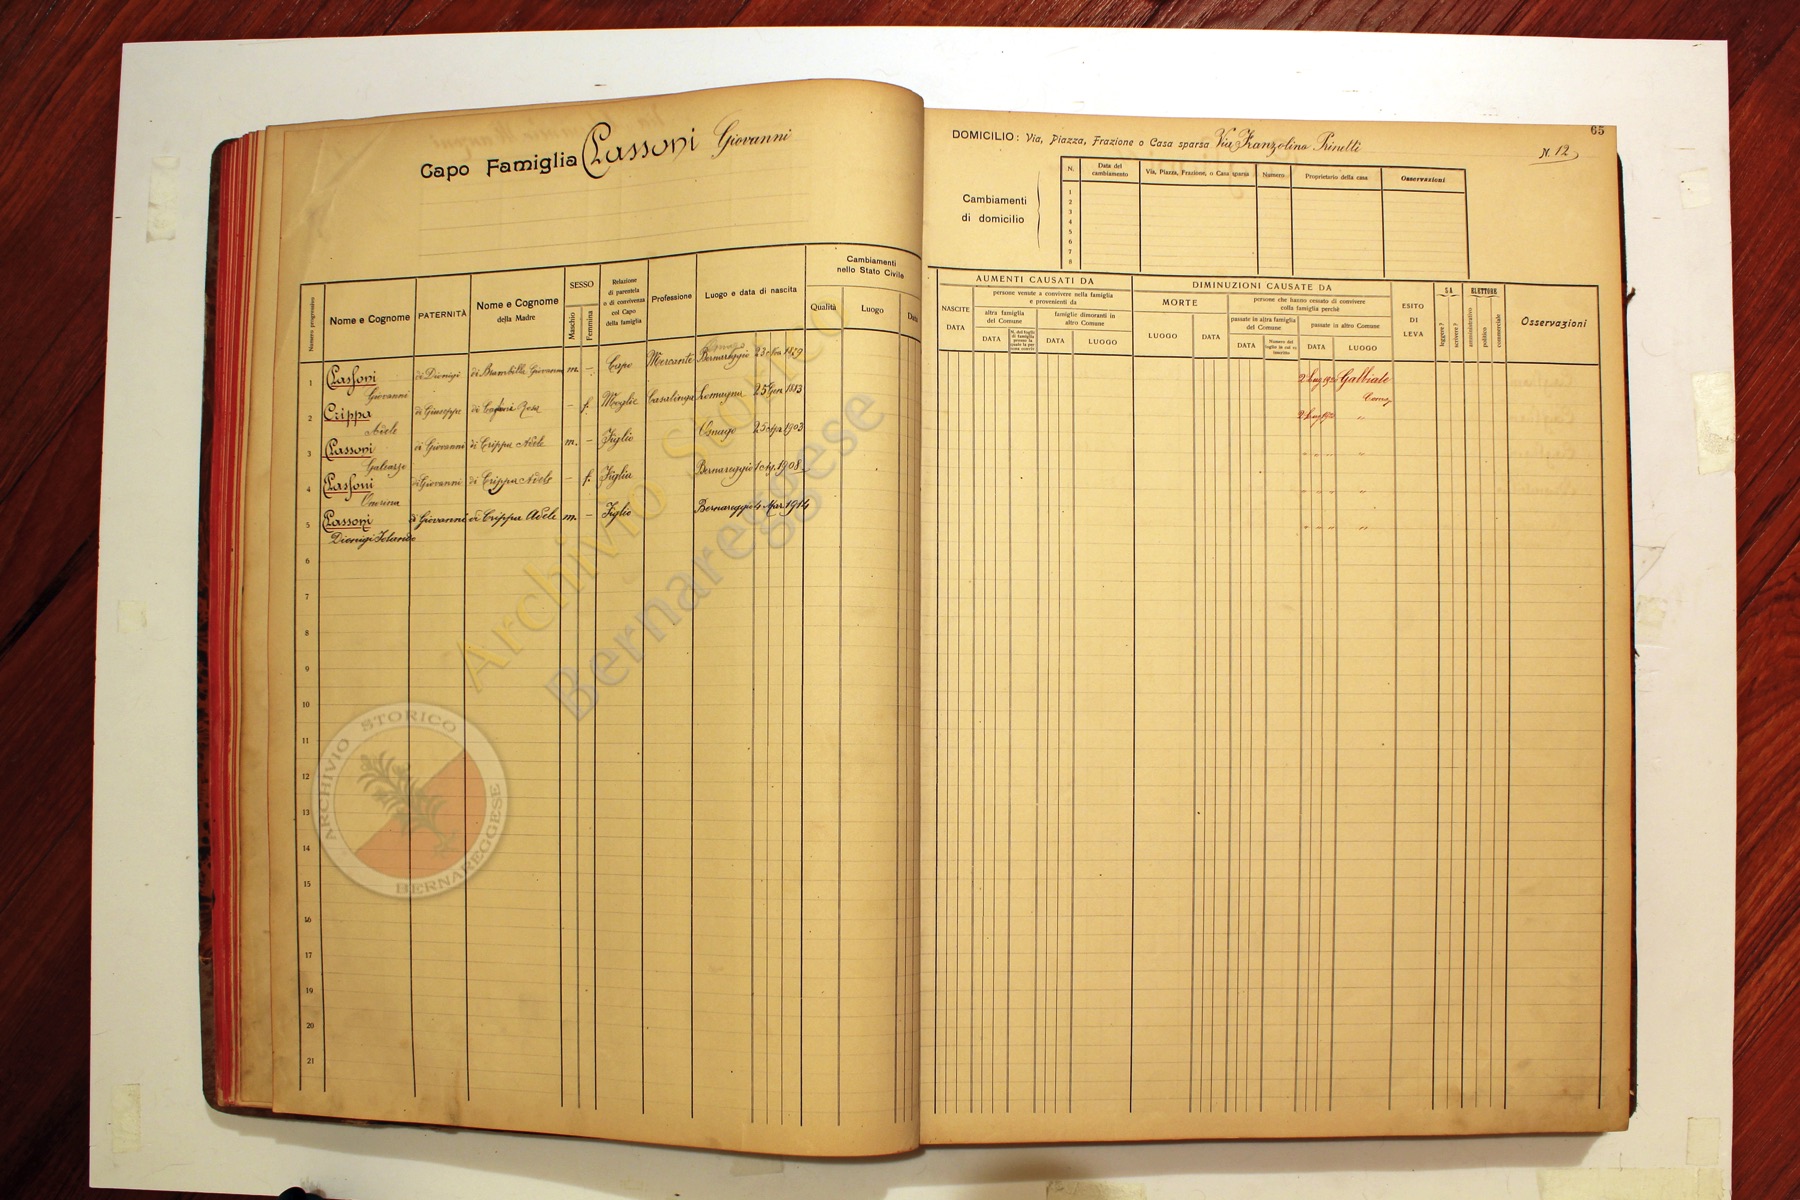 Capo Famiglia Passoni Giovanni
65
DOMICILIO: Via, Piazza, Frazione o Casa sparsa Via Franzolino Prinetti
N. 12
Cambiamenti
di domicilio
N.
Data del
cambiamento
Via, Piazza, Frazione, o Casa sparsa
Numero
Proprietario della casa
Osservazioni
1
2
3
4
5
6
7
8
Numero progressivo
Nome e Cognome
PATERNITÀ
Nome e Cognome
della Madre
SESSO
Maschio
Femmina
Relazione
di parentela
o di convivenza
col Capo
della famiglia
Professione
Luogo e data di nascita
Cambiamenti
nello Stato Civile
Qualità
Luogo
Data
AUMENTI CAUSATI DA
NASCITE
DATA
persone venute a convivere nella famiglia
e provenienti da
altra famiglia
del Comune
DATA
famiglie dimoranti in
altro Comune
DATA
LUOGO
DIMINUZIONI CAUSATE DA
MORTE
LUOGO
DATA
persone che hanno cessato di convivere
colla famiglia perchè
passate in altra famiglia
del Comune
DATA
Numero del
foglio in cui so
inscritte
passate in altro Comune
DATA
LUOGO
ESITO
DI
LEVA
SA
leggere?
scrivere?
ELETTORE
amministrativo
politico
commerciale
Osservazioni
1 Passoni Giovanni di Dionigi di Brambilla Giovanna m. – Capo Mercante Bernareggio 23 1879 Galbiate
Como
2 Crippa Adele di Giuseppe di Rosa – f. Moglie Casalinga Lomagna 25 Gen 1883 "
3 Passoni Galeazzo di Giovanni di Crippa Adele m. – Figlio Osnago 25 1903 " " "
4 Passoni Onorina di Giovanni di Crippa Adele – f. Figlia Bernareggio 1 1908 " " "
5 Passoni Dionigi Iolando di Giovanni di Crippa Adele m. – Figlio Bernareggio 4 Mar 1914 " " "
6
7
8
9
10
11
12
13
14
15
16
17
18
19
20
21
Archivio Storico
Bernareggese
ARCHIVIO STORICO
BERNAREGGESE